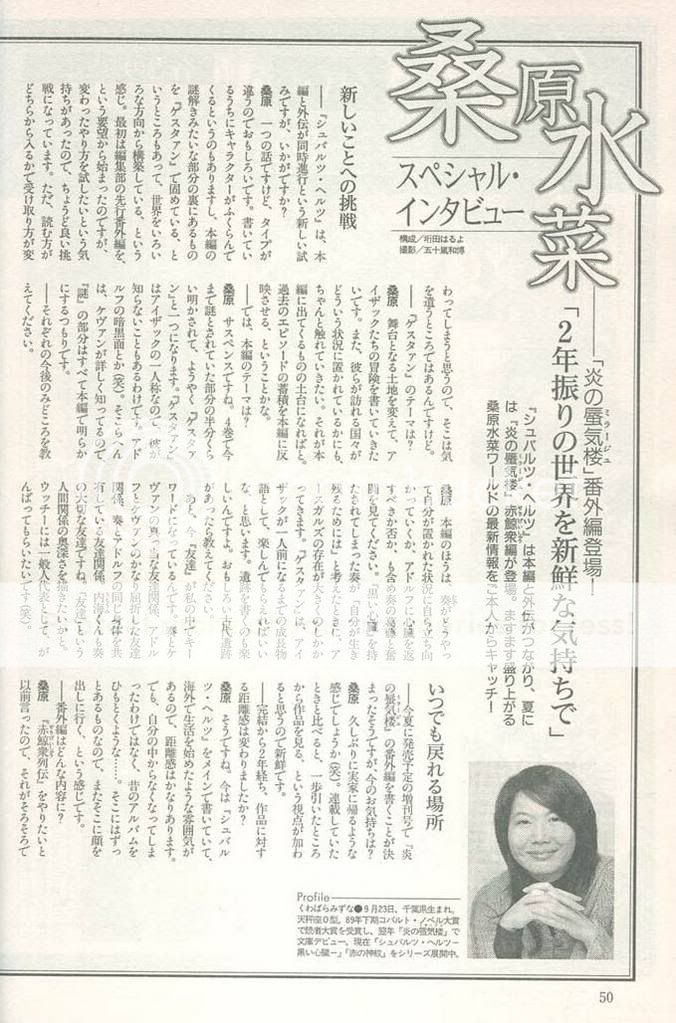 桑原水菜
スペシャル・
インタビュー
構成／珩田はるよ
撮影／五十嵐和博
――「炎の蜃気楼」番外編登場――
ミラージュ
「２年振りの世界を新鮮な気持ちで」
『シュバルツ・ヘルツ』は本編と外伝がつながり、夏に
は『炎の蜃気楼』赤鯨衆編が登場。ますます盛り上がる
桑原水菜ワールドの最新情報をご本人からキャッチー
新しいことへの挑戦
――『シュバルツ・ヘルツ』は、本
編と外伝が同時進行という新しい試
みですが、いかがですか？
桑原　一つの話ですけど、タイプが
違うのでおもしろいです。書いてい
るうちにキャラクターがふくらんで
くるというのもありますし、本編の
謎解きみたいな部分の裏にあるもの
を『ゲスタァン』で固めている、と
いうところもあって、世界をいろい
ろな方向から構築している、という
感じ。最初は編集部の先行番外編を、
という要望から始まったのですが、
変わったやり方を試したいという気
持ちがあったので、ちょうど良い挑
戦になっています。ただ、読む方が
どちらから入るかで受け取り方が変
わってしまうと思うので、そこは気
を遣うところではあるんですけど。
――『ゲスタァン』のテーマは？
桑原　舞台となる土地を変えて、ア
イザックたちの冒険を書いていきた
いです。また、彼らが訪れる国々が
どういう状況に置かれているかにも、
ちゃんと触れていきたい。それが本
編に出てくるものの土台になればと。
過去のエピソードの蓄積を本編に反
映させる、ということかな。
――では、本編のテーマは？
桑原　サスペンスですね。４巻で今
まで謎とされていた部分の半分くら
い明かされて、ようやく『ゲスタァ
ン』と一つになります。『ゲスタァン』
はアイザックの一人称なので、彼が
知らないこともあるわけです。アド
ルフの暗黒面とか（笑）。そこらへん
は、ケヴァンが詳しく知ってるので、
『謎』の部分はすべて本編で明らか
にするつもりです。
――それぞれの今後のみどころを教
えてください。
桑原　本編のほうは、奏がどうやっ
て自分が置かれた状況に自ら立ち向
かっていくか、アドルフに心臓を返
すべきか否か、も含め奏の葛藤と奮
闘を見てください。『黒い心臓』を持
たされてしまった奏が、「自分が生き
残るためには」と考えたときに、ア
ースガルズの存在が大きくのしかか
ってきます。『ゲスタァン』は、アイ
ザックが一人前になるまでの成長物
語として、楽しんでもらえればいい
な、と思います。遺跡を書くのも楽
しいんですよ。おもしろい古代遺跡
があったら教えてください。
あと、今『友達』が私の中でキー
ワードになっているんです。奏とケ
ヴァンの真っ当な友達関係、アドル
フとケヴァンのかなり屈折した友達
関係、奏とアドルフの同じ身体を共
有している友達関係、内海くんも奏
の大切な友達ですね。「友達」という
人間関係の奥深さを描きたいかと。
ウッチーには一般人代表として、が
んばってもらいたいです（笑）。
いつでも戻れる場所
――今夏に発売予定の増刊号で『炎
の蜃気楼』の番外編を書くことが決
ミラージュ
まったそうですが、今のお気持ちは？
桑原　久しぶりに実家に帰るような
感じでしょうか（笑）。連載していた
ときと比べると、一歩引いたところ
から作品を見る、という視点が加わ
ると思うので新鮮です。
――完結から２年経ち、作品に対す
る距離感は変わりましたか？
桑原　そうですね。今は『シュバル
ツ・ヘルツ』をメインで書いていて、
海外で生活を始めたような雰囲気が
あるので、距離感はかなりあります。
でも、自分の中からなくなってしま
ったわけではなく、昔のアルバムを
ひもとくような……。そこにはずっ
とあるものなので、またそこに顔を
出しに行く、という感じです。
――番外編はどんな内容に？
桑原　『赤鯨衆列伝』をやりたいと
以前言ったので、それがそろそろで
Profile
くわばらみずな●９月23日、千葉県生まれ。
天秤座Ｏ型。89年下期コバルト・ノベル大賞
で読者大賞を受賞し、翌年『炎の蜃気楼』で
文庫デビュー。現在『シュバルツ・ヘルツ―
黒い心臓―』『赤の神紋』をシリーズ展開中。
50